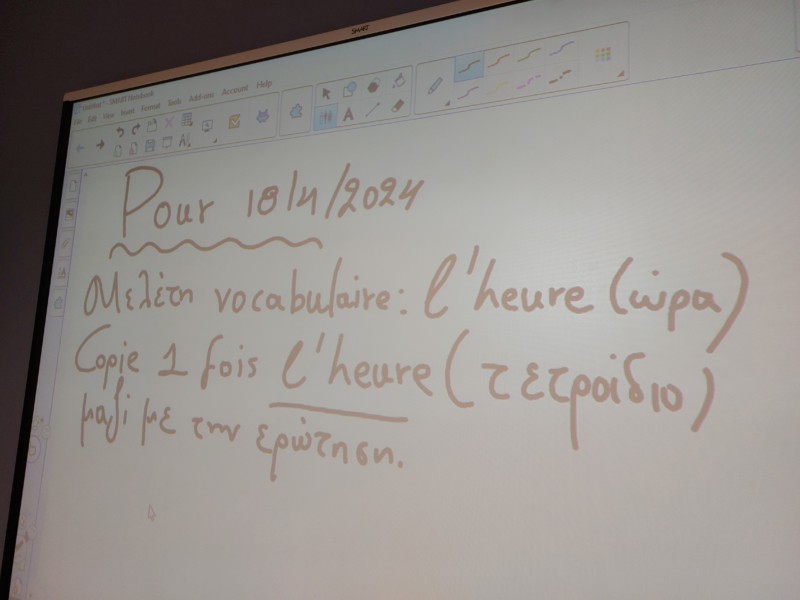 SMART
Untitled * - SMART Notebook
File Edit View Insert Format Tools Add-ons Account Help
Pour 18/4/2024
Μελέτη vocabulaire: l'heure (ώρα)
Copie 1 fois l'heure (τετράδιο)
μαζί με την ερώτηση.